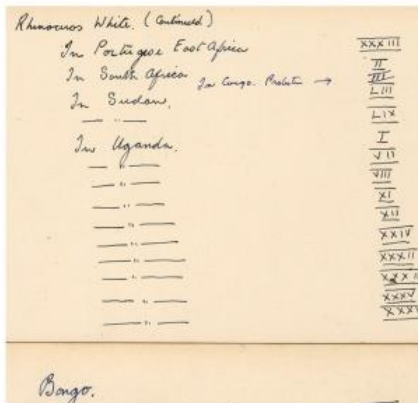 Rhinoceros White. (Continued)
In Portugese East Africa XXXIII
In South Africa II
In Congo. → III
In Sudan. LIII
— " — LIX
In Uganda. I
— " — VII
— " — VIII
— " — XI
— " — XII
— " — XXIV
— " — XXXII
— " —
— " — XXXV
— " —
Bongo.